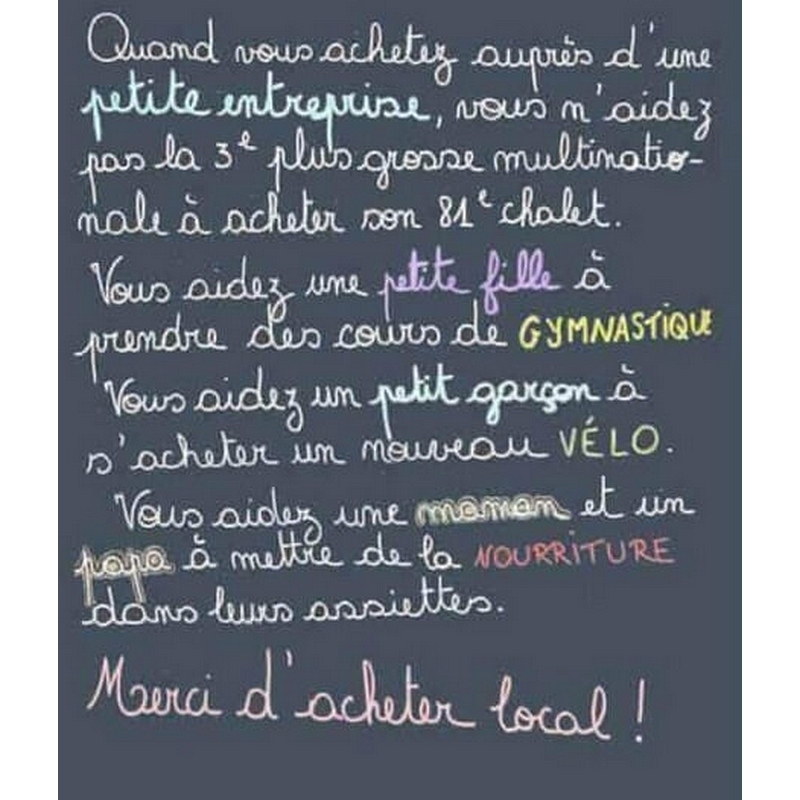 Quand vous achetez auprès d'une
petite entreprise, vous n'aidez
pas la 3e plus grosse multinatio-
nale à acheter son 81e chalet.
Vous aidez une petite fille à
prendre des cours de GYMNASTIQUE
Vous aidez un petit garçon à
s'acheter un nouveau VÉLO.
Vous aidez une maman et un
papa à mettre de la NOURRITURE
dans leurs assiettes.
Merci d'acheter local !